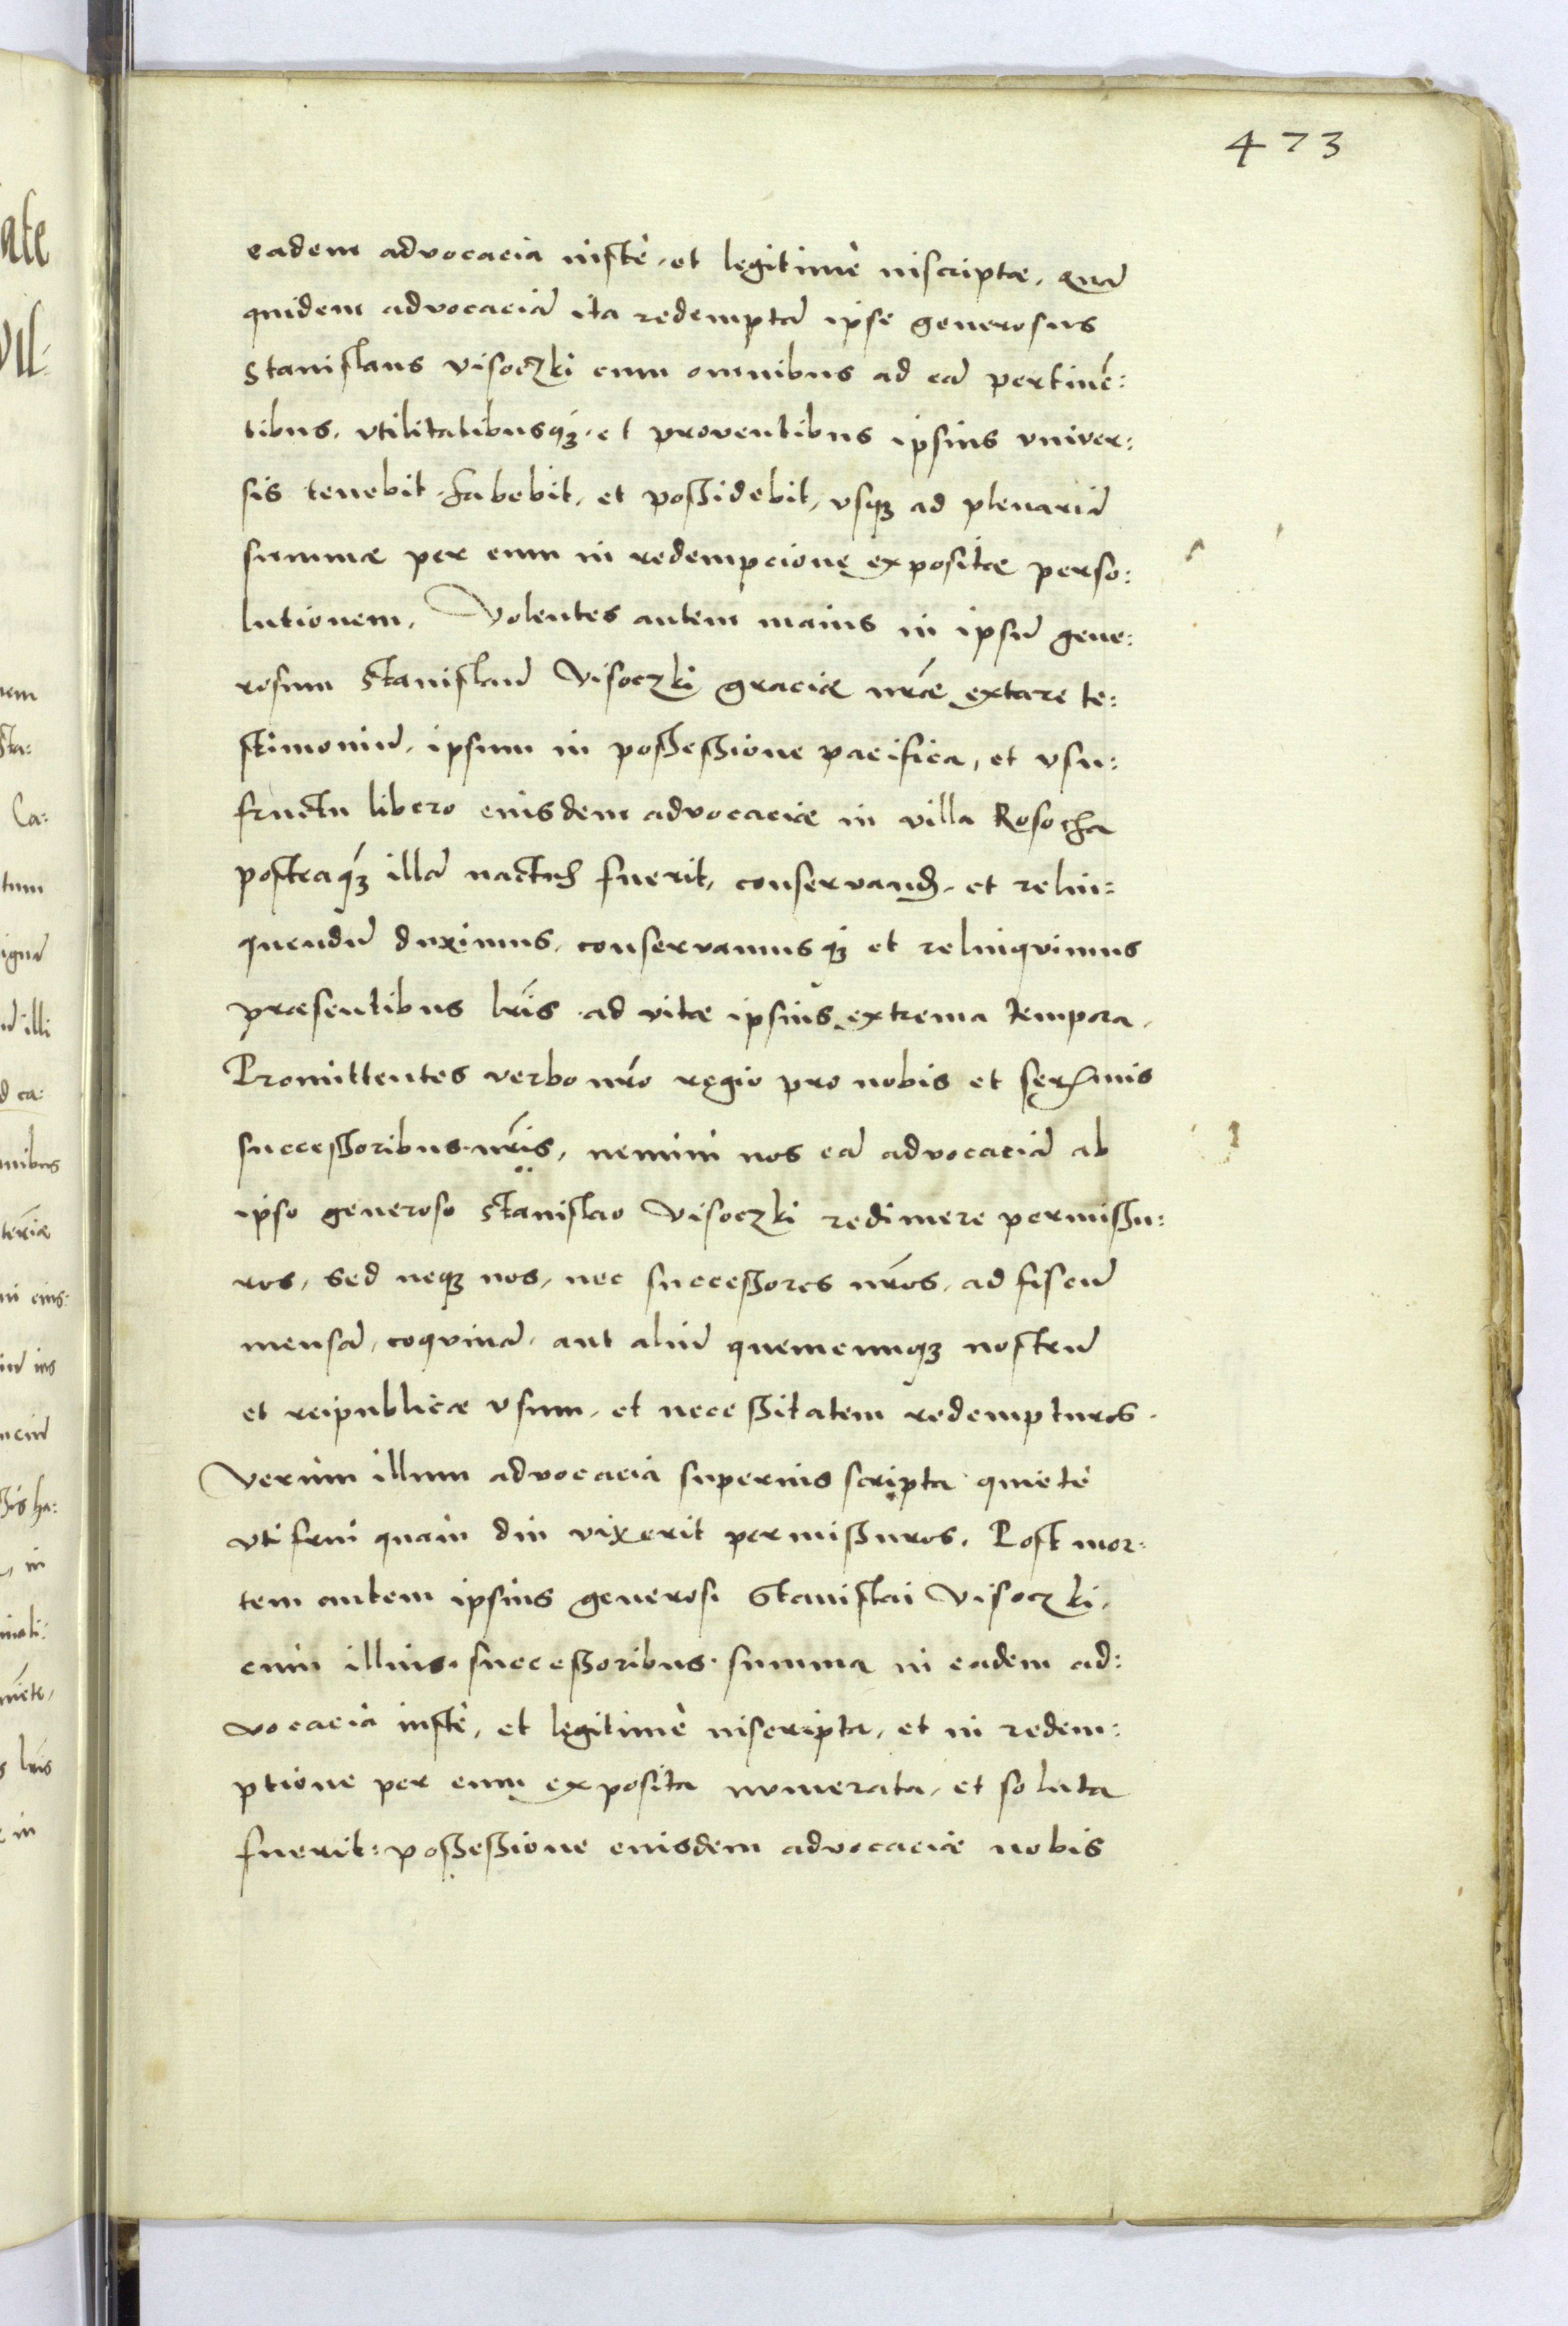 473
eadem advocacia iustè, et legitimè inscriptæ, Quā
quidem advocaciā ita redemptā ipse generosus
Stanislaus Visoczki cum omnibus ad eā pertinē:
tibus, vtilitatibusqꝫ, et proventibus ipsius vniver:
sis tenebit, habebit, et possidebit, vsqꝫ ad plenariā
summæ per eum in redempcione expositæ perso:
lutionem. Volentes autem maius in ipsū gene:
rosum Stanislaū Visoczki graciæ nr̄æ extare te:
stimoniū, ipsum in possessione pacifica, et vsu:
fructu libero eiusdem advocaciæ in villa Rosocha
posteaqꝫ illā nactus fuerit, conservand, et relin:
quendū duximus, conservamusqꝫ et relinquimus
præsentibus lr̄is ad vitæ ipsius extrema tempora.
Promittentes verbo nr̄o regio pro nobis et serēmis
successoribus nr̄is, nemini nos eā advocaciā ab
ipso generoso Stanislao Visoczki redimere permissu:
ros, sed neqꝫ nos, nec successores nr̄os, ad fiscū
mensā, coquinā, aut aliū quemcunqꝫ nostrū
et reipublicæ vsum, et necessitatem redempturos.
Verùm illum advocacia superius scripta quietè
vti frui quàm diu vixerit permissuros. Post mor:
tem autem ipsius generosi Stanislai Visoczki,
cùm illius successoribus summa in eadem ad:
vocacia iustè, et legitimè inscripta, et in redem:
ptione per eum exposita numerata, et soluta
fuerit: possessione eiusdem advocaciæ nobis